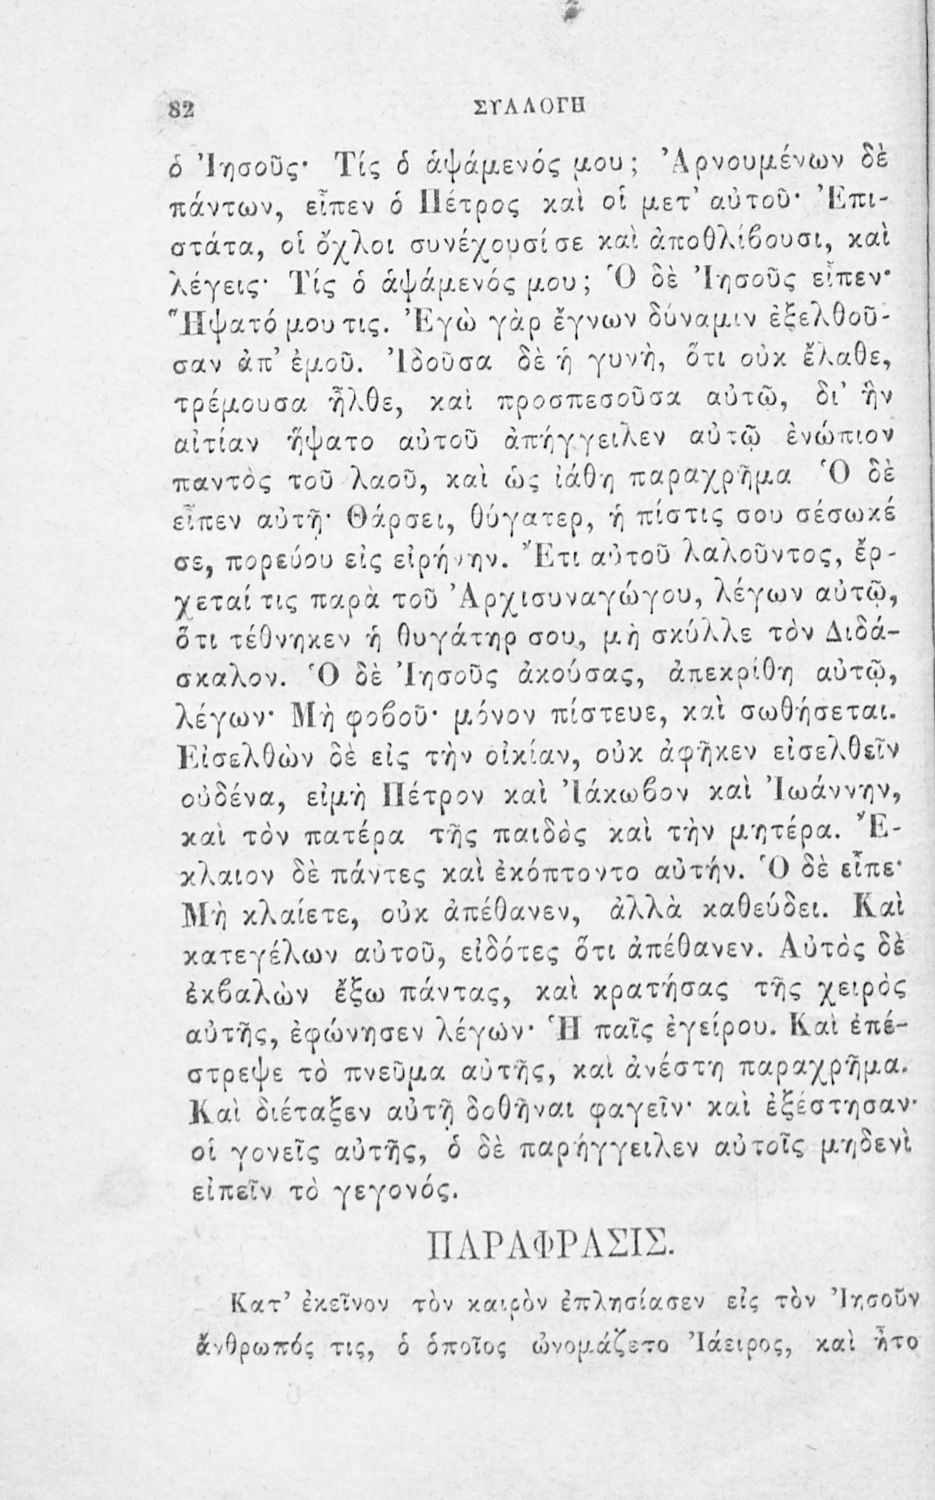 82 ΣΥΛΛΟΓΗ
ὁ Ἰησοῦς· Τίς ὁ ἁψάμενός μου; Ἀρνουμένων δὲ
πάντων, εἶπεν ὁ Πέτρος καὶ οἱ μετ’ αὐτοῦ· Ἐπι-
στάτα, οἱ ὄχλοι συνέχουσί σε καὶ ἀποθλίβουσι, καὶ
λέγεις· Τίς ὁ ἁψάμενός μου; Ὁ δὲ Ἰησοῦς εἶπεν·
Ἥψατό μου τις. Ἐγὼ γὰρ ἔγνων δύναμιν ἐξελθοῦ-
σαν ἀπ’ ἐμοῦ. Ἰδοῦσα δὲ ἡ γυνὴ, ὅτι οὐκ ἔλαθε,
τρέμουσα ἦλθε, καὶ προσπεσοῦσα αὐτῷ, δι’ ἣν
αἰτίαν ἥψατο αὐτοῦ ἀπήγγειλεν αὐτῷ ἐνώπιον
παντὸς τοῦ λαοῦ, καὶ ὡς ἰάθη παραχρῆμα Ὁ δὲ
εἶπεν αὐτῇ· Θάρσει, θύγατερ, ἡ πίστις σου σέσωκέ
σε, πορεύου εἰς εἰρήνην. Ἔτι αὐτοῦ λαλοῦντος, ἔρ-
χεταί τις παρὰ τοῦ Ἀρχισυναγώγου, λέγων αὐτῷ,
ὅτι τέθνηκεν ἡ θυγάτηρ σου, μὴ σκύλλε τὸν Διδά-
σκαλον. Ὁ δὲ Ἰησοῦς ἀκούσας, ἀπεκρίθη αὐτῷ,
λέγων· Μὴ φοβοῦ· μόνον πίστευε, καὶ σωθήσεται.
Εἰσελθὼν δὲ εἰς τὴν οἰκίαν, οὐκ ἀφῆκεν εἰσελθεῖν
οὐδένα, εἰμὴ Πέτρον καὶ Ἰάκωβον καὶ Ἰωάννην,
καὶ τὸν πατέρα τῆς παιδὸς καὶ τὴν μητέρα. Ἔ-
κλαιον δὲ πάντες καὶ ἐκόπτοντο αὐτήν. Ὁ δὲ εἶπε·
Μὴ κλαίετε, οὐκ ἀπέθανεν, ἀλλὰ καθεύδει. Καὶ
κατεγέλων αὐτοῦ, εἰδότες ὅτι ἀπέθανεν. Αὐτὸς δὲ
ἐκβαλὼν ἔξω πάντας, καὶ κρατήσας τῆς χειρὸς
αὐτῆς, ἐφώνησεν λέγων· Ἡ παῖς ἐγείρου. Καὶ ἐπέ-
στρεψε τὸ πνεῦμα αὐτῆς, καὶ ἀνέστη παραχρῆμα.
Καὶ διέταξεν αὐτῇ δοθῆναι φαγεῖν· καὶ ἐξέστησαν·
οἱ γονεῖς αὐτῆς, ὁ δὲ παρήγγειλεν αὐτοῖς μηδενὶ
εἰπεῖν τὸ γεγονός.
ΠΑΡΑΦΡΑΣΙΣ.
Κατ’ ἐκεῖνον τὸν καιρὸν ἐπλησίασεν εἰς τὸν Ἰησοῦν
ἄνθρωπός τις, ὁ ὁποῖος ὠνομάζετο Ἰάειρος, καὶ ἦτο